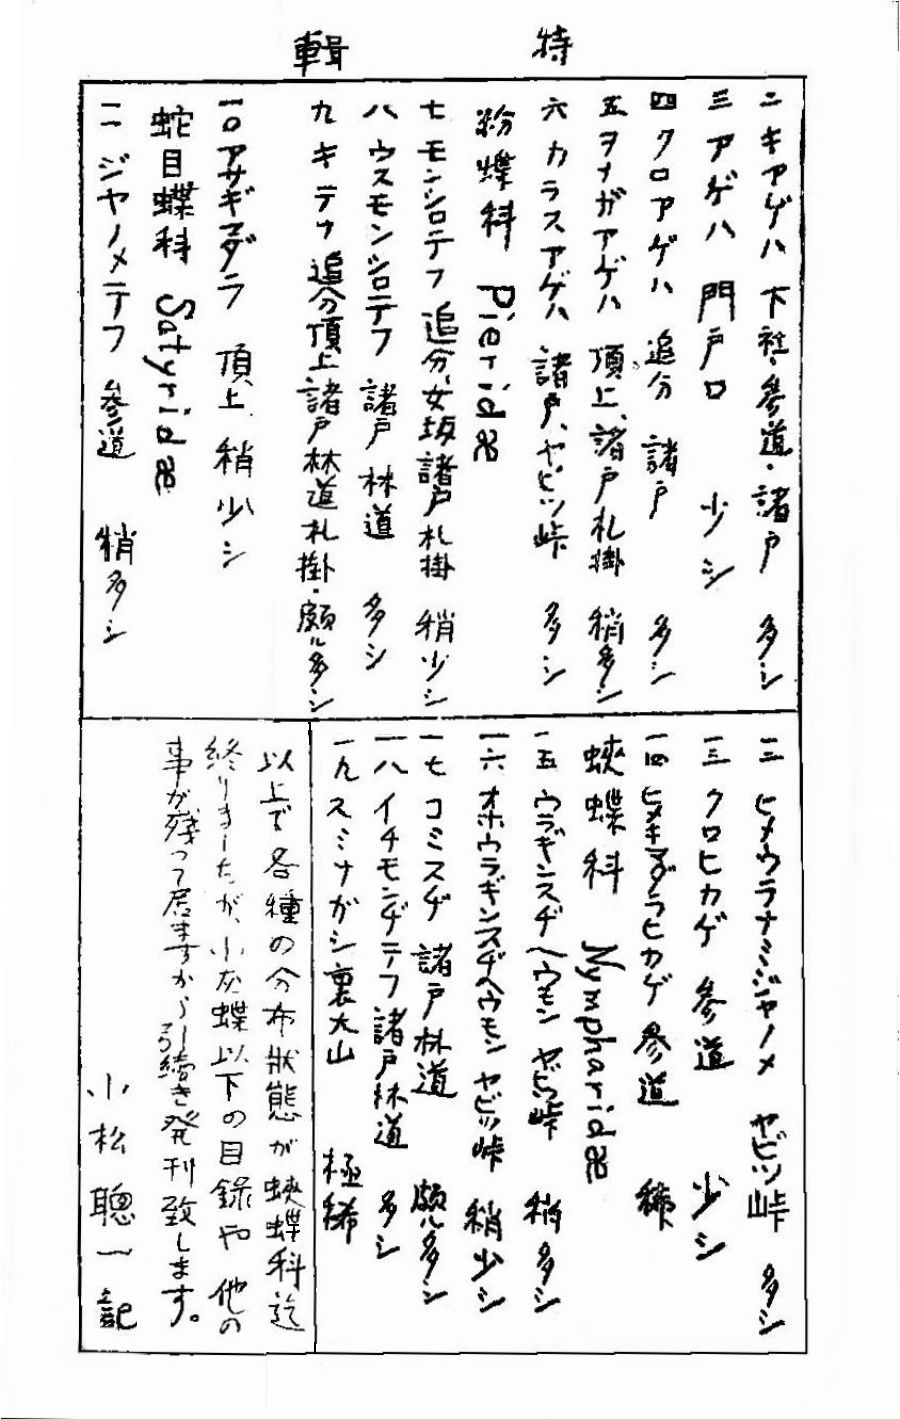 特輯
二 キアゲハ 下社・参道・諸戸 多シ
三 アゲハ 門戸口 少シ
四 クロアゲハ 追分 諸戸 多シ
五 ヲナガアゲハ 頂上、諸戸札掛 稍多シ
六 カラスアゲハ 諸戸、ヤビツ峠 多シ
粉蝶科 Pieridæ
七 モンシロテフ 追分、女坂諸戸札掛 稍少シ
八 ウスモンシロテフ 諸戸 林道 多シ
九 キテフ 追分頂上諸戸林道札掛・頗ル多シ
一〇アサギマダラ 頂上、稍少シ
蛇目蝶科 Satyridæ
一一 ジヤノメテフ 参道 稍多シ
一二 ヒメウラナミジヤノメ ヤビツ峠 多シ
一三 クロヒカゲ 参道 少シ
一四 ヒメキマダラヒカゲ 参道 稀
蛺蝶科 Nympharidæ
一五 ウラギンスヂヘウモン ヤビツ峠 稍多シ
一六 オホウラギンスヂヘウモン ヤビツ峠 稍少シ
一七 コミスヂ 諸戸林道 頗ル多シ
一八 イチモンヂテフ 諸戸林道 多シ
一九 スミナガシ 裏大山 極稀
以上で各種の分布狀態が蛺蝶科迄
終りましたが、小灰蝶以下の目録や他の
事が残って居ますから引続き発刊致します。
小松聰一記